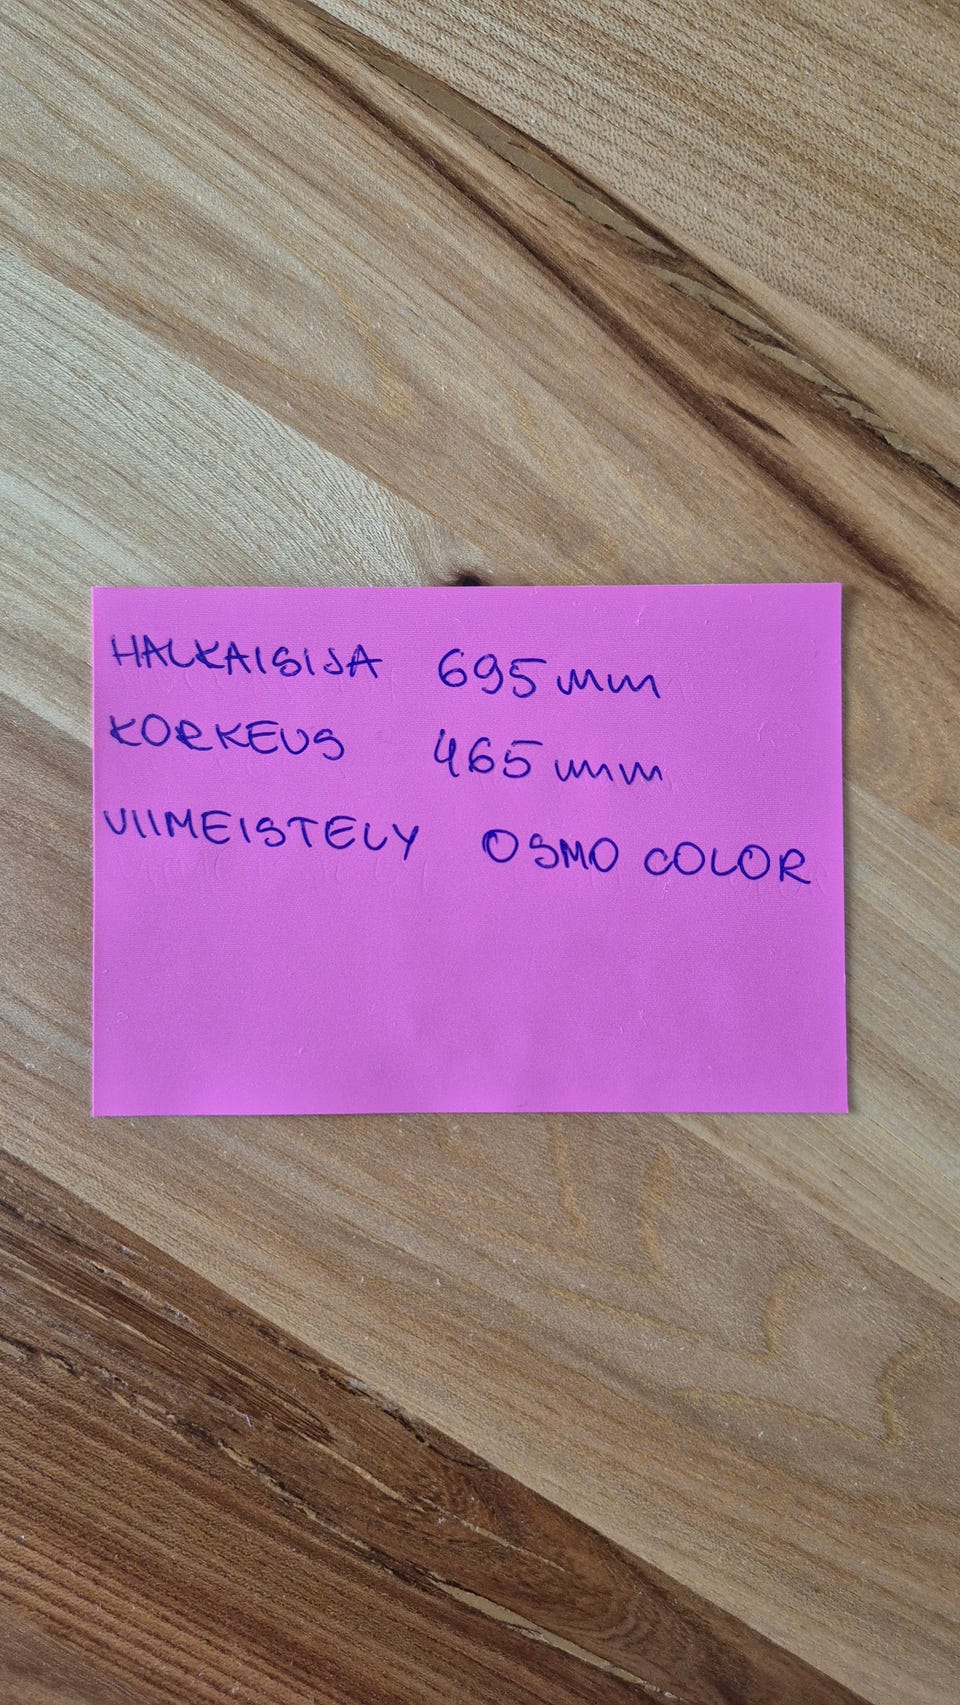 HALKAISIJA 695 mm
KORKEUS 465 mm
VIIMEISTELY OSMO COLOR